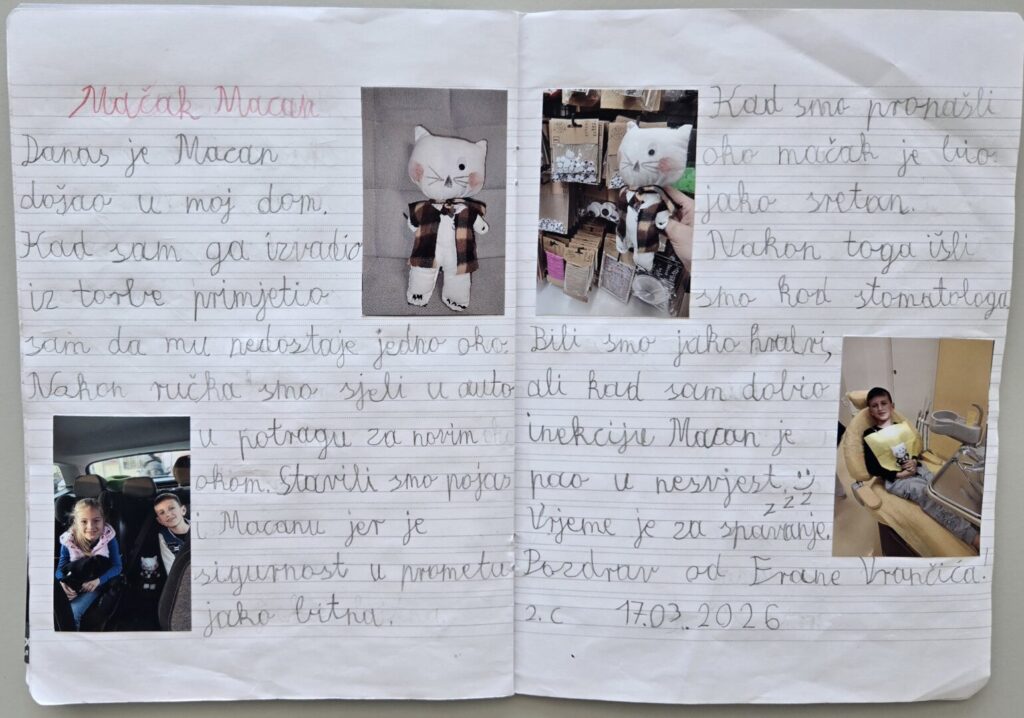 Mačak Macan
Danas je Macan
došao u moj dom.
Kad sam ga izvadio
iz torbe primjetio
sam da mu nedostaje jedno oko.
Nakon ručka smo sjeli u auto
u potragu za novim
okom. Stavili smo pojas
i Macanu jer je
sigurnost u prometu
jako bitna.
Kad smo pronašli
oko mačak je bio
jako sretan.
Nakon toga išli
smo kod stomatologa
Bili smo jako hrabri,
ali kad sam dobio
inekciju Macan je
pao u nesvjest.
zzz
Vrjeme je za spavanje.
Pozdrav od Frane Vrančića!
2. C 17.03..2026